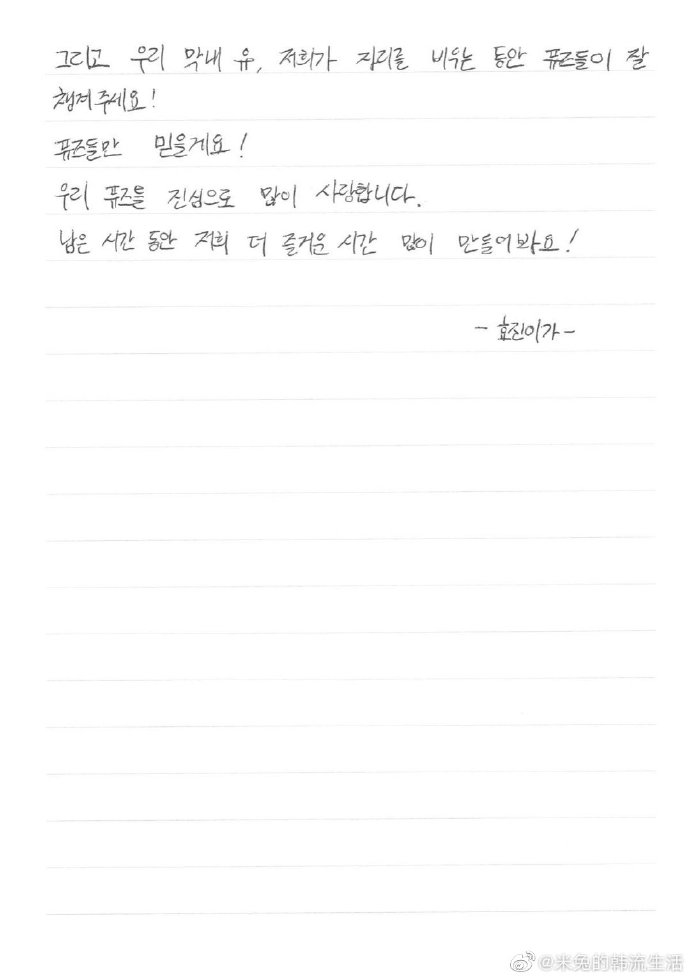 그리고 우리 막내 유, 저희가 자리를 비우는 동안 퓨즈들이 잘
챙겨주세요!
퓨즈들만 믿을게요!
우리 퓨즈들 진심으로 많이 사랑합니다.
남은 시간 동안 저희 더 즐거운 시간 많이 만들어봐요!
- 효진이가 -
@米兔的韩流生活